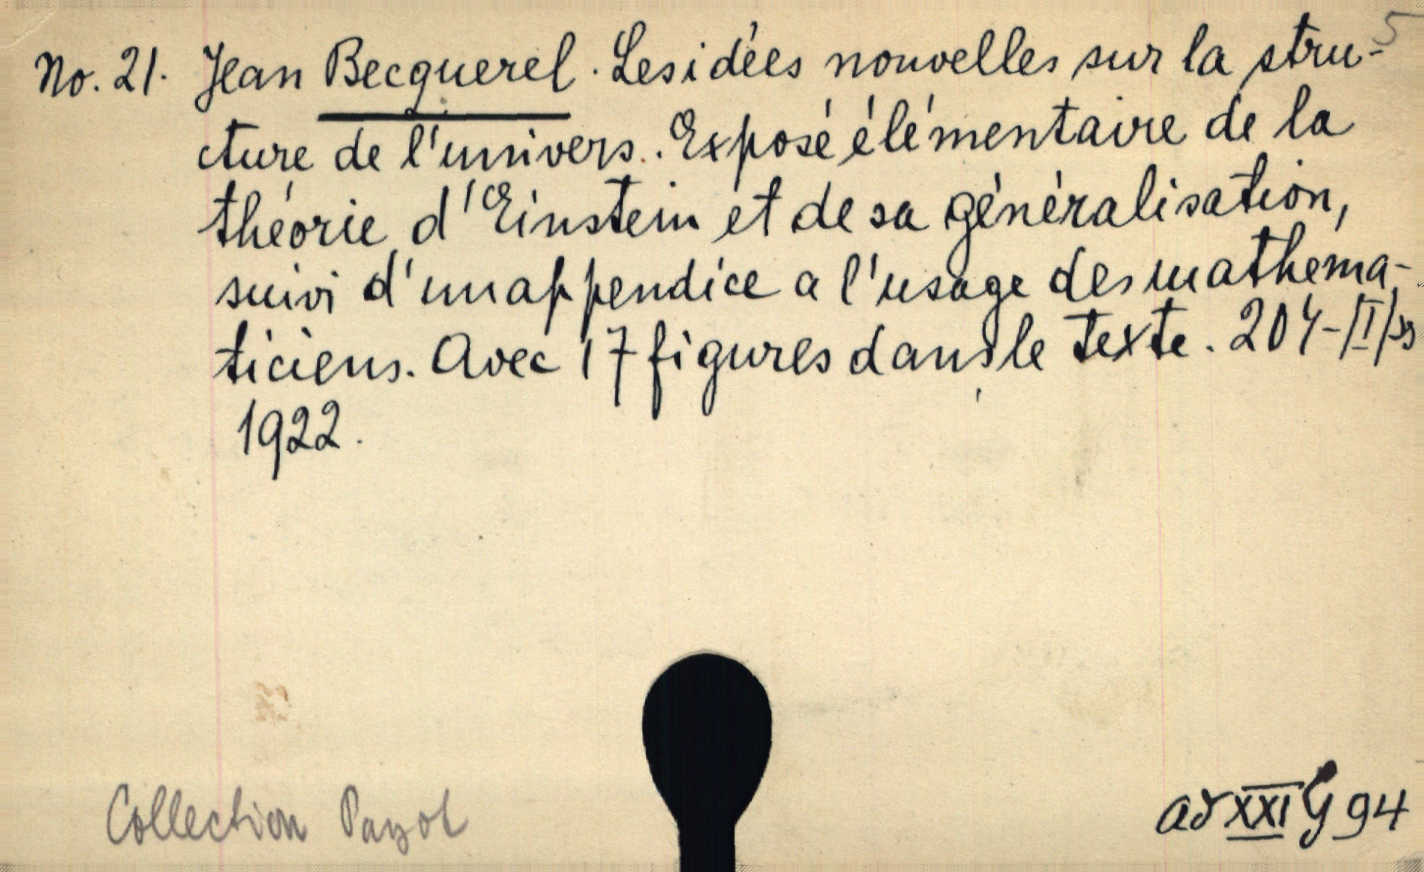 5
No. 21. Jean Becquerel. Les idées nouvelles sur la stru-
cture de l'univers. Exposé élémentaire de la
théorie d'Einstein et de sa généralisation,
suivi d'un appendice a l'usage des mathema-
ticiens. Avec 17 figures dans le texte. 204-/I/
1922.
Collection Payot
ad XXI G 94